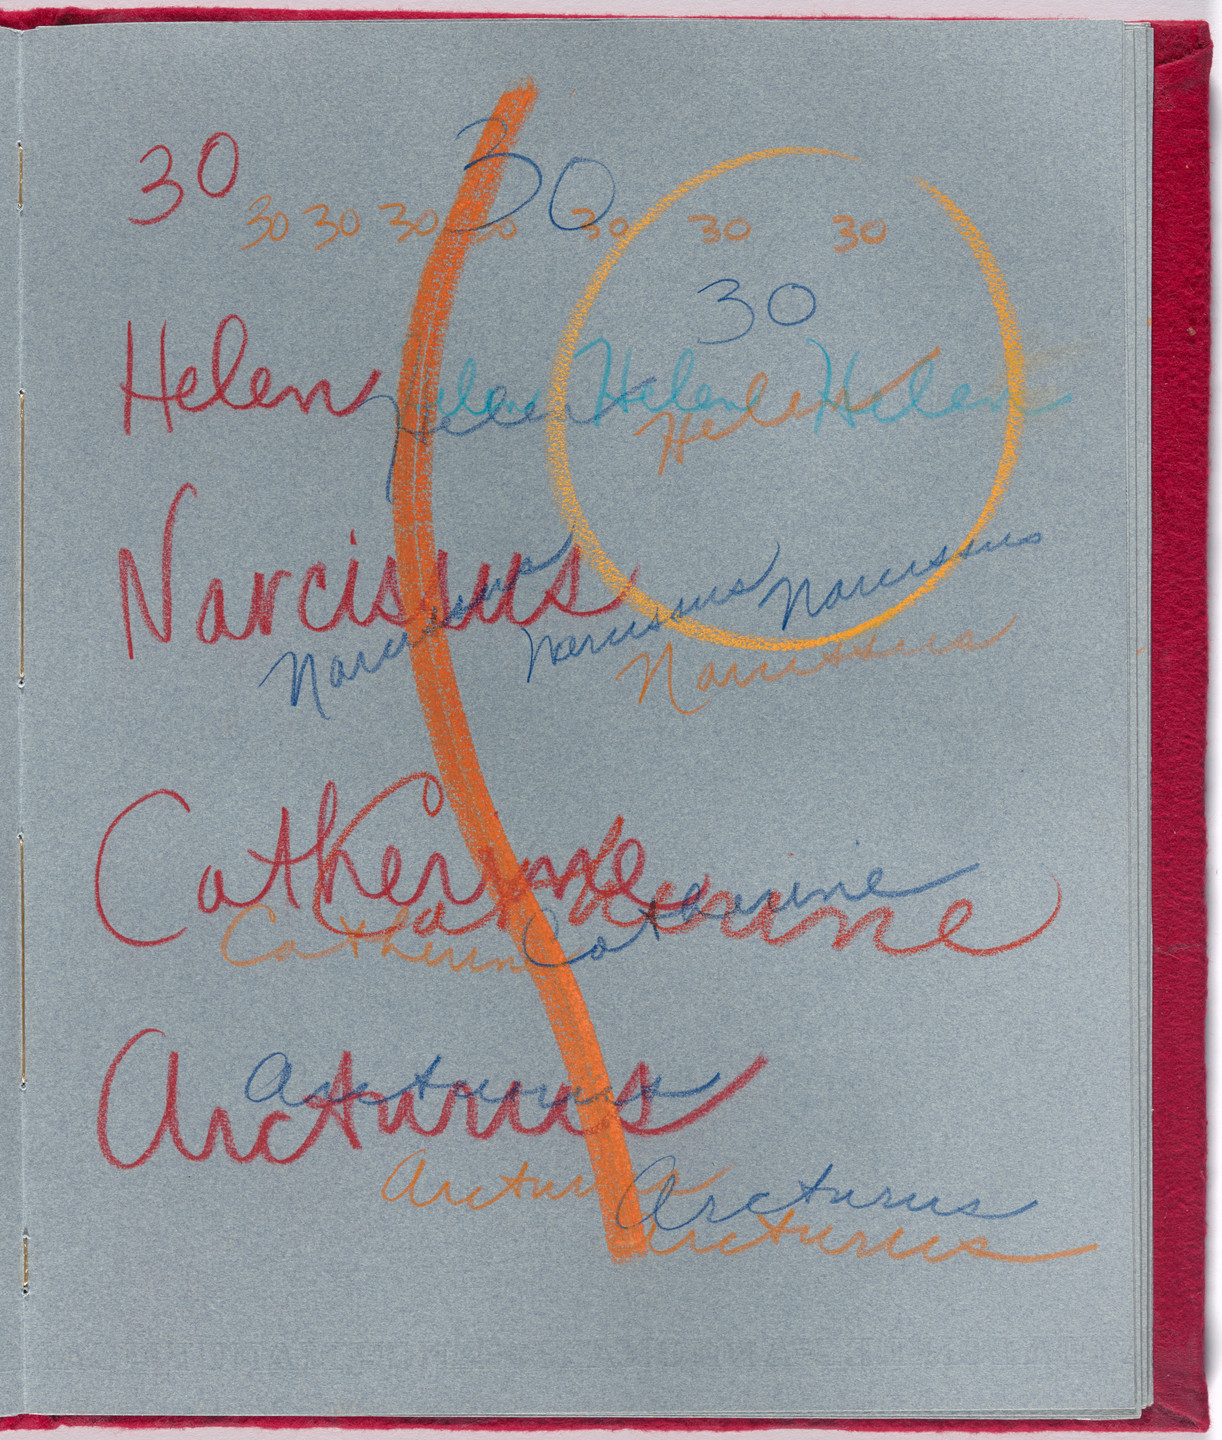 30 30
30 30 30 30 30 30 30
30
Helen Helen Helen Helen
Helen Helen
Narcissus
Narcissus Narcissus Narcissus
Catherine Catherine
Catherine Catherine
Arcturus
Arcturus
Arcturus Arcturus
Arcturus